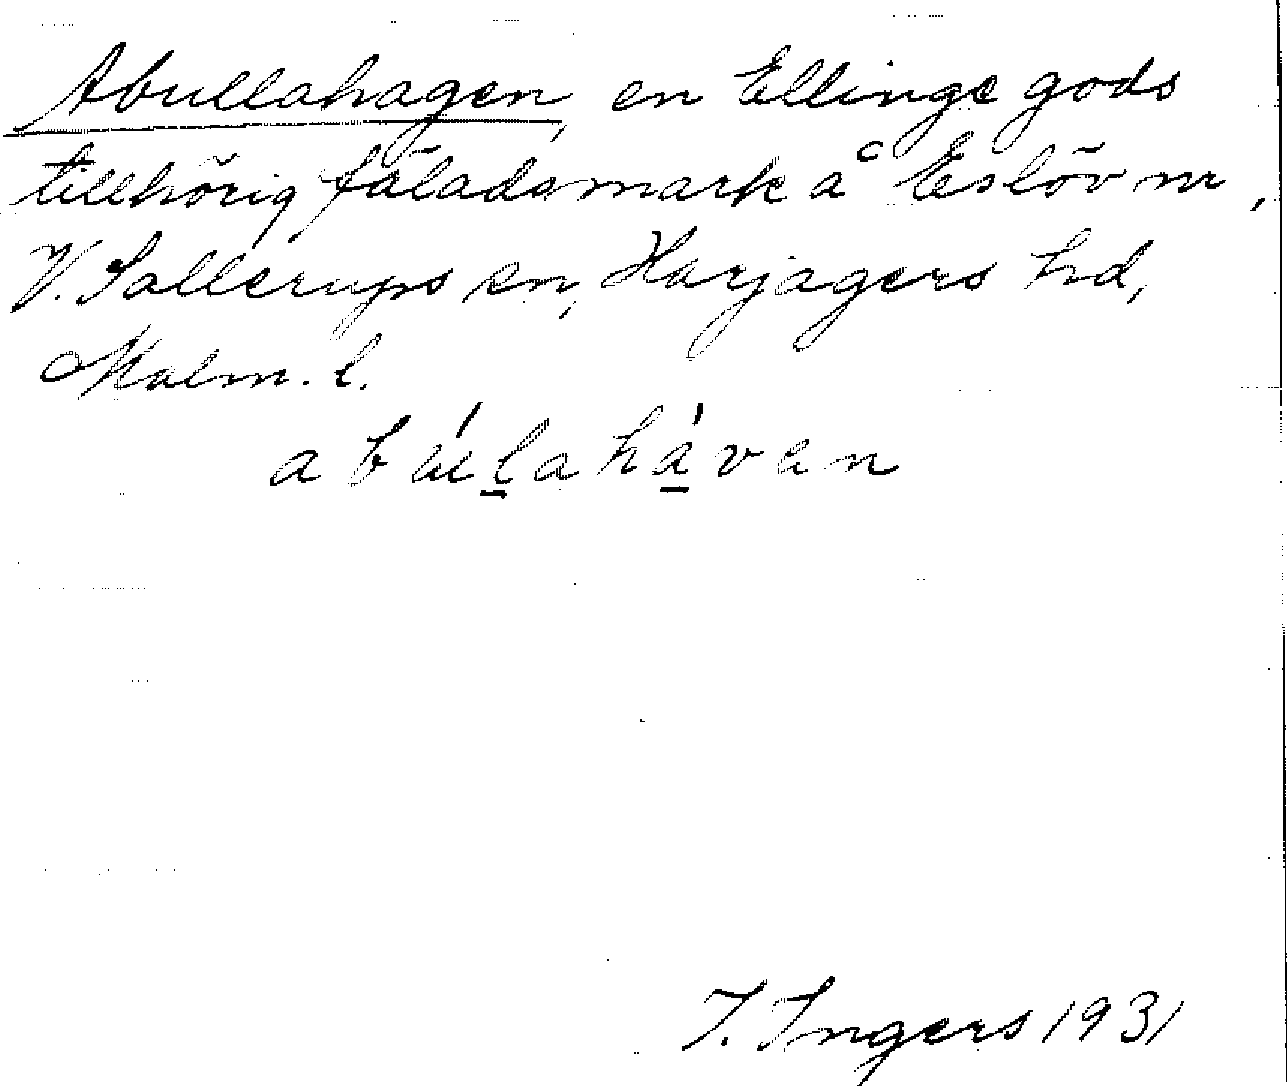 Abullahagen, en Ellinge gods
tillhörig fäladsmark å Eslöv nr ,
V. Sallerups sn, Harjagers hd,
Malm. l.
abúlahávan
I. Ingers 1931